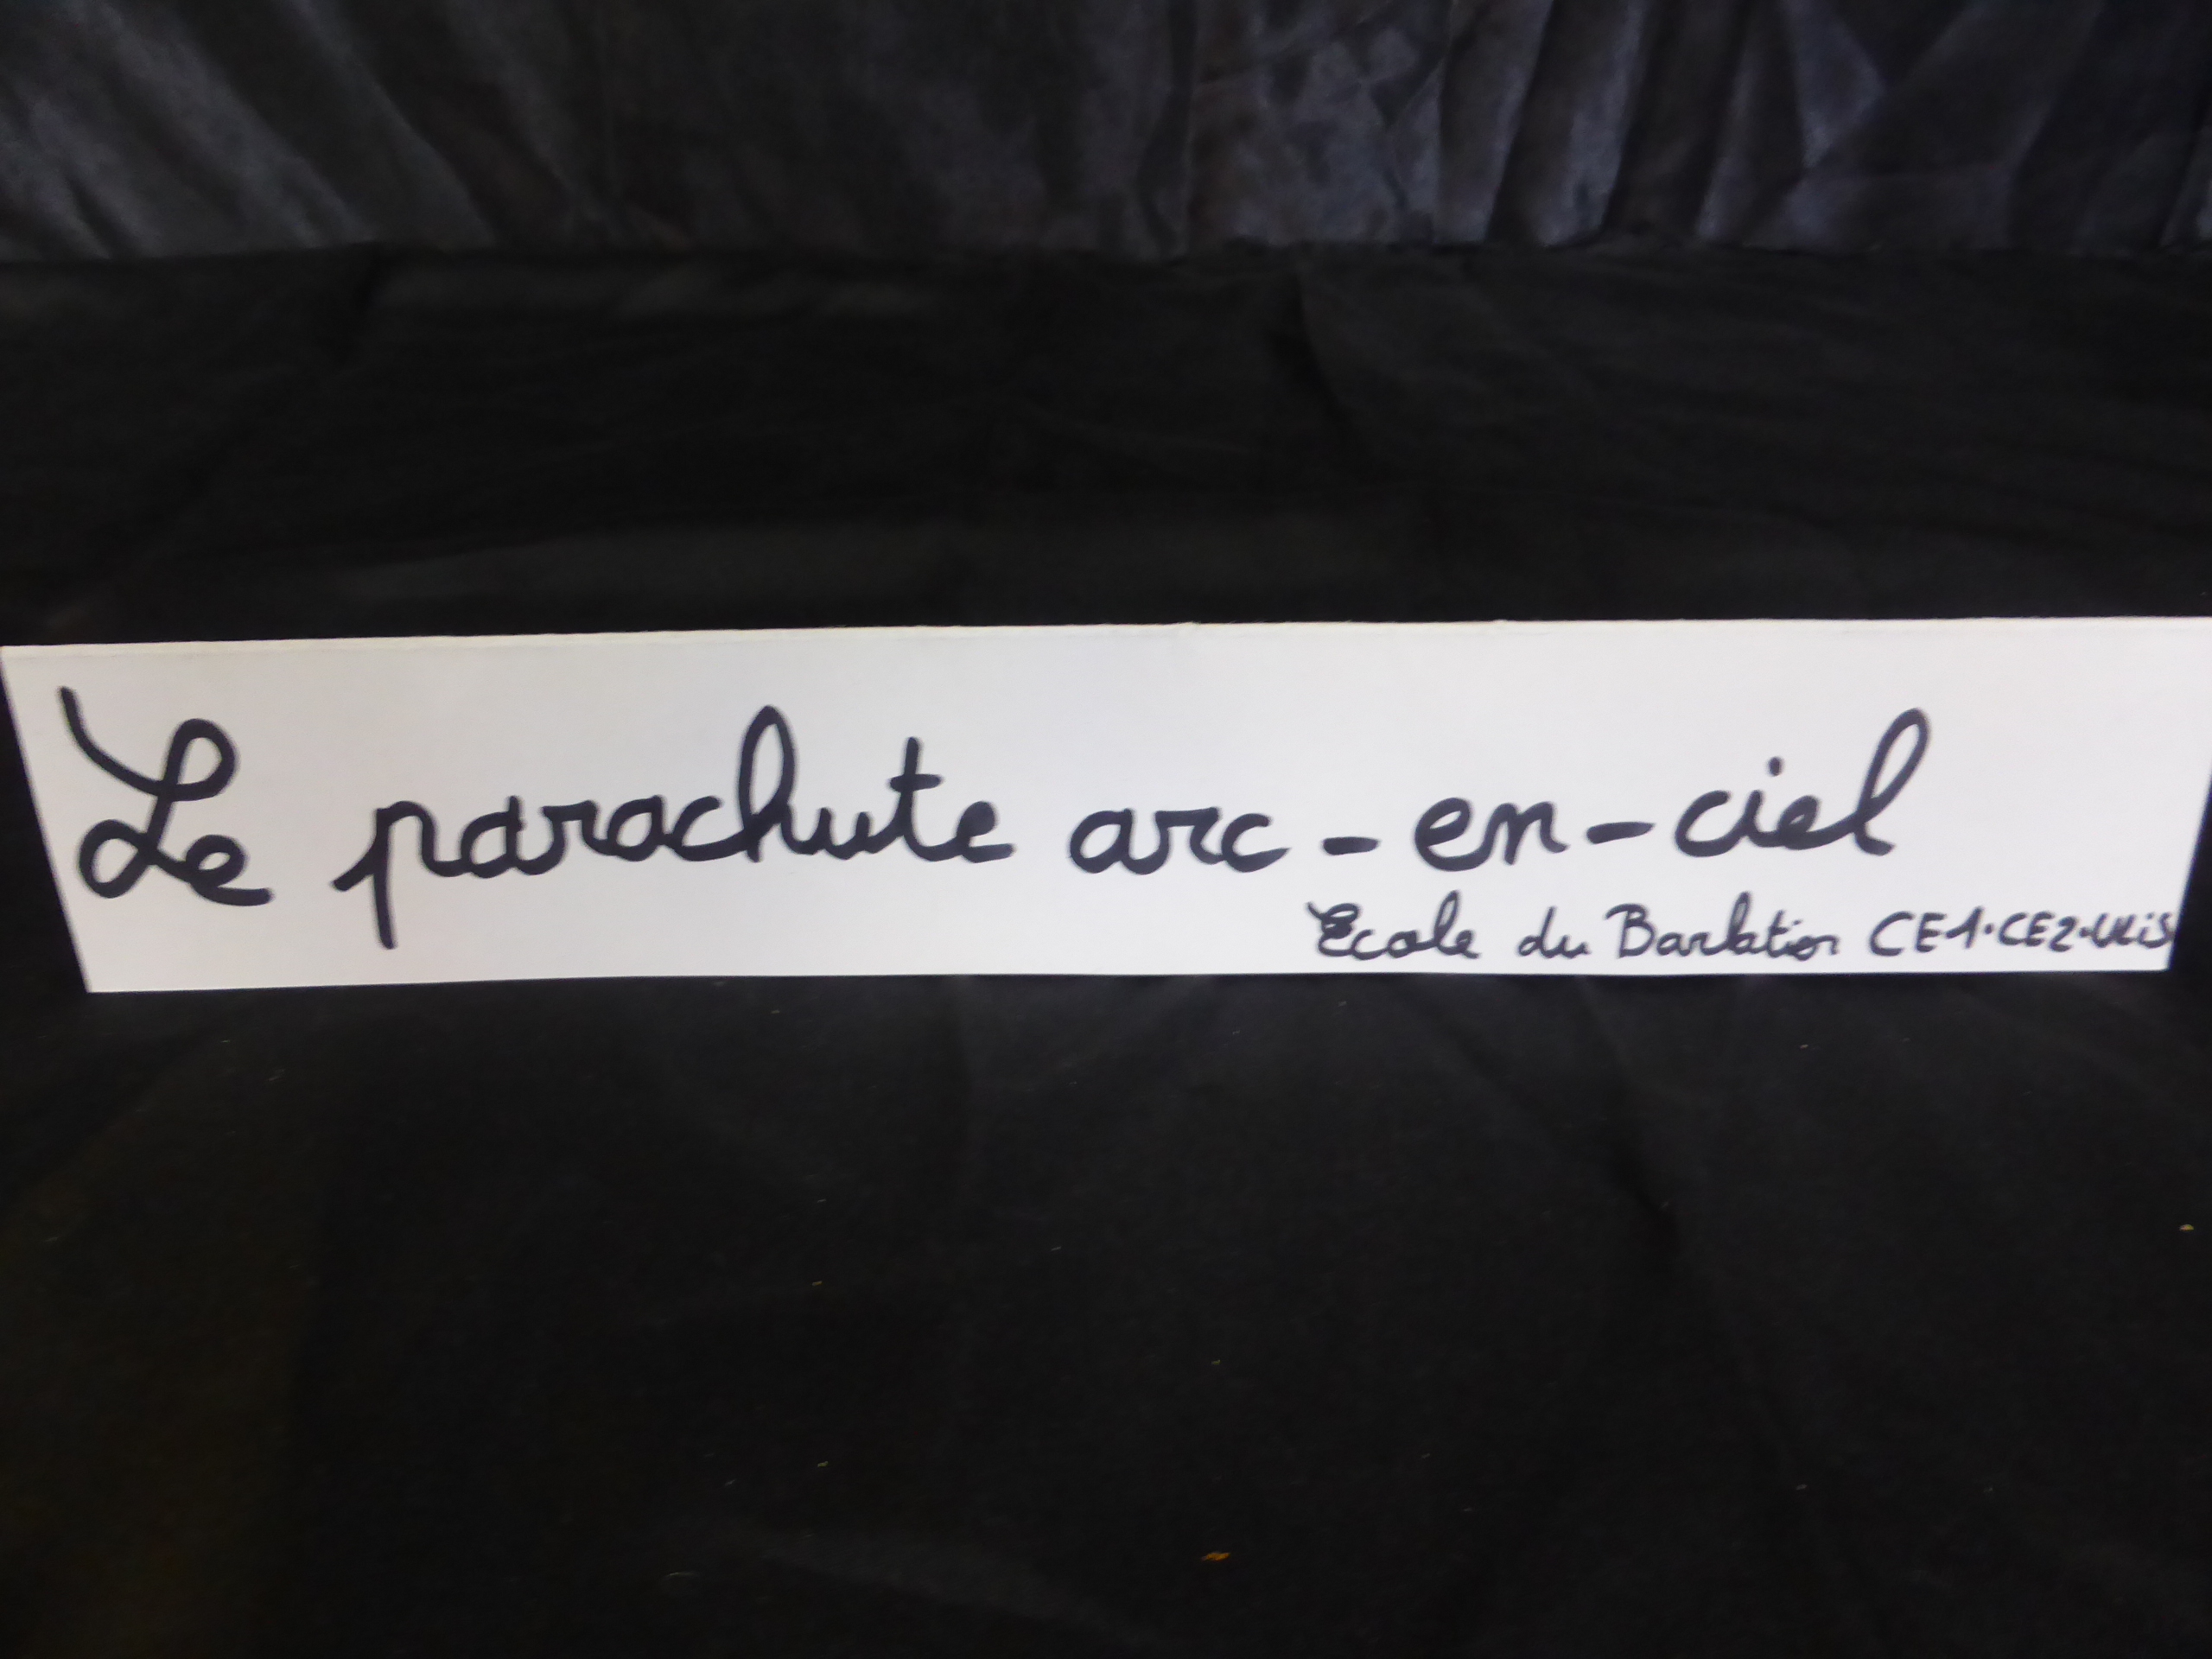 Le parachute arc-en-ciel
Ecole du Barlatier CE1.CE2.ULiS